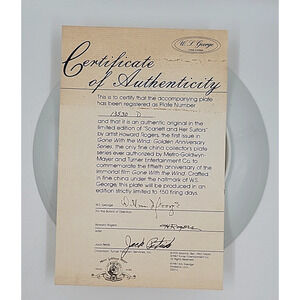 W. S. George
Certificate
of Authenticity
This is to certify that the accompanying plate
has been registered as Plate Number
13530 D
and that it is an authentic original in the
limited edition of "Scarlett and Her Suitors"
by artist Howard Rogers, the first issue in
Gone With the Wind: Golden Anniversary
Series, the only fine china collector's plate
series ever authorized by Metro-Goldwyn-
Mayer and Turner Entertainment Co. to
commemorate the fiftieth anniversary of the
immortal film Gone With the Wind. Crafted
in fine china under the hallmark of W.S.
George, this plate will be produced in an
edition strictly limited to 150 firing days.
W.S. George
For the Board of Directors
Howard Rogers
Artist
H Rogers
Jack Petrik